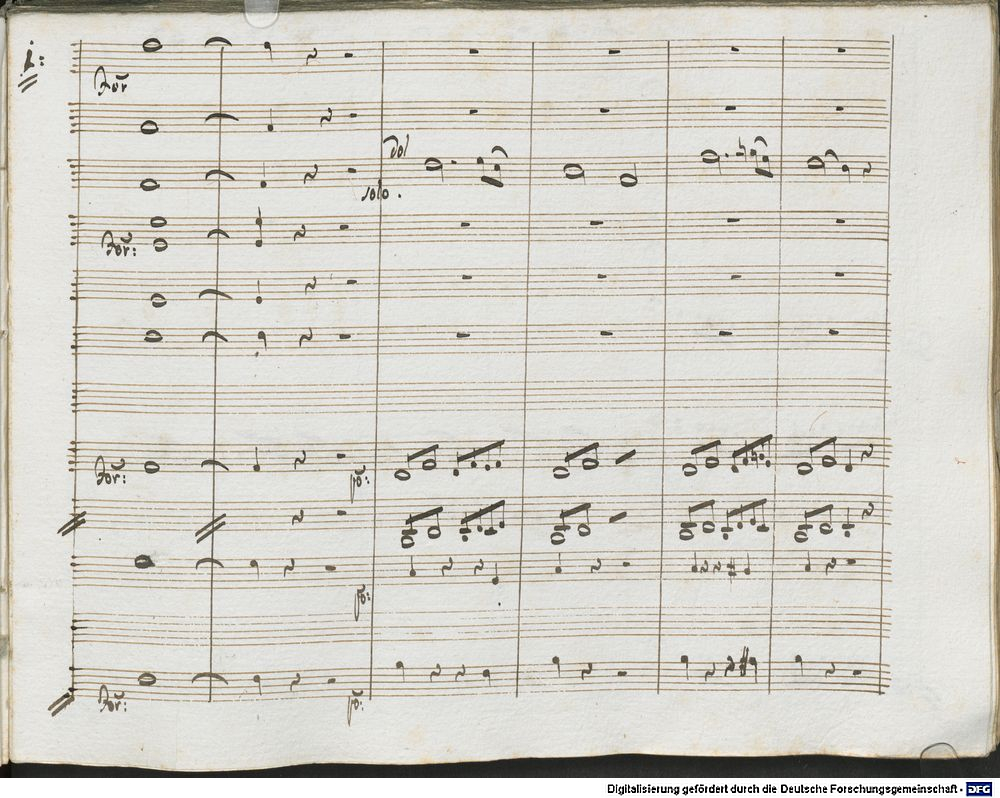 1:
For
dol
solo.
For:
For:
po:
po:
For:
po:
Digitalisierung gefördert durch die Deutsche Forschungsgemeinschaft - DFG